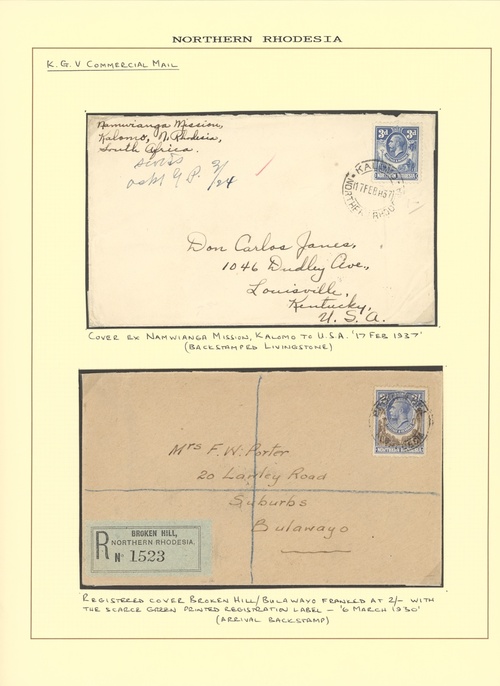 NORTHERN RHODESIA
K. G. V COMMERCIAL MAIL
Namwianga Mission,
Kalomo, N. Rhodesia,
South Africa.
3d 3d
NORTHERN RHODESIA
KALOMO
17 FEB 37
NORTHERN RHODESIA
Don Carlos Janes,
1046 Dudley Ave.,
Louisville,
Kentucky,
U. S. A.
COVER EX NAMWIANGA MISSION, KALOMO TO U.S.A. '17 FEB 1937'
(BACKSTAMPED LIVINGSTONE)
NORTHERN RHODESIA
Mrs F. W. Porter
20 Lawley Road
Suburbs
Bulawayo
R
BROKEN HILL,
NORTHERN RHODESIA.
No 1523
REGISTERED COVER BROKEN HILL/BULAWAYO FRANKED AT 2/- WITH
THE SCARCE GREEN PRINTED REGISTRATION LABEL - '6 MARCH 1930'
(ARRIVAL BACKSTAMP)